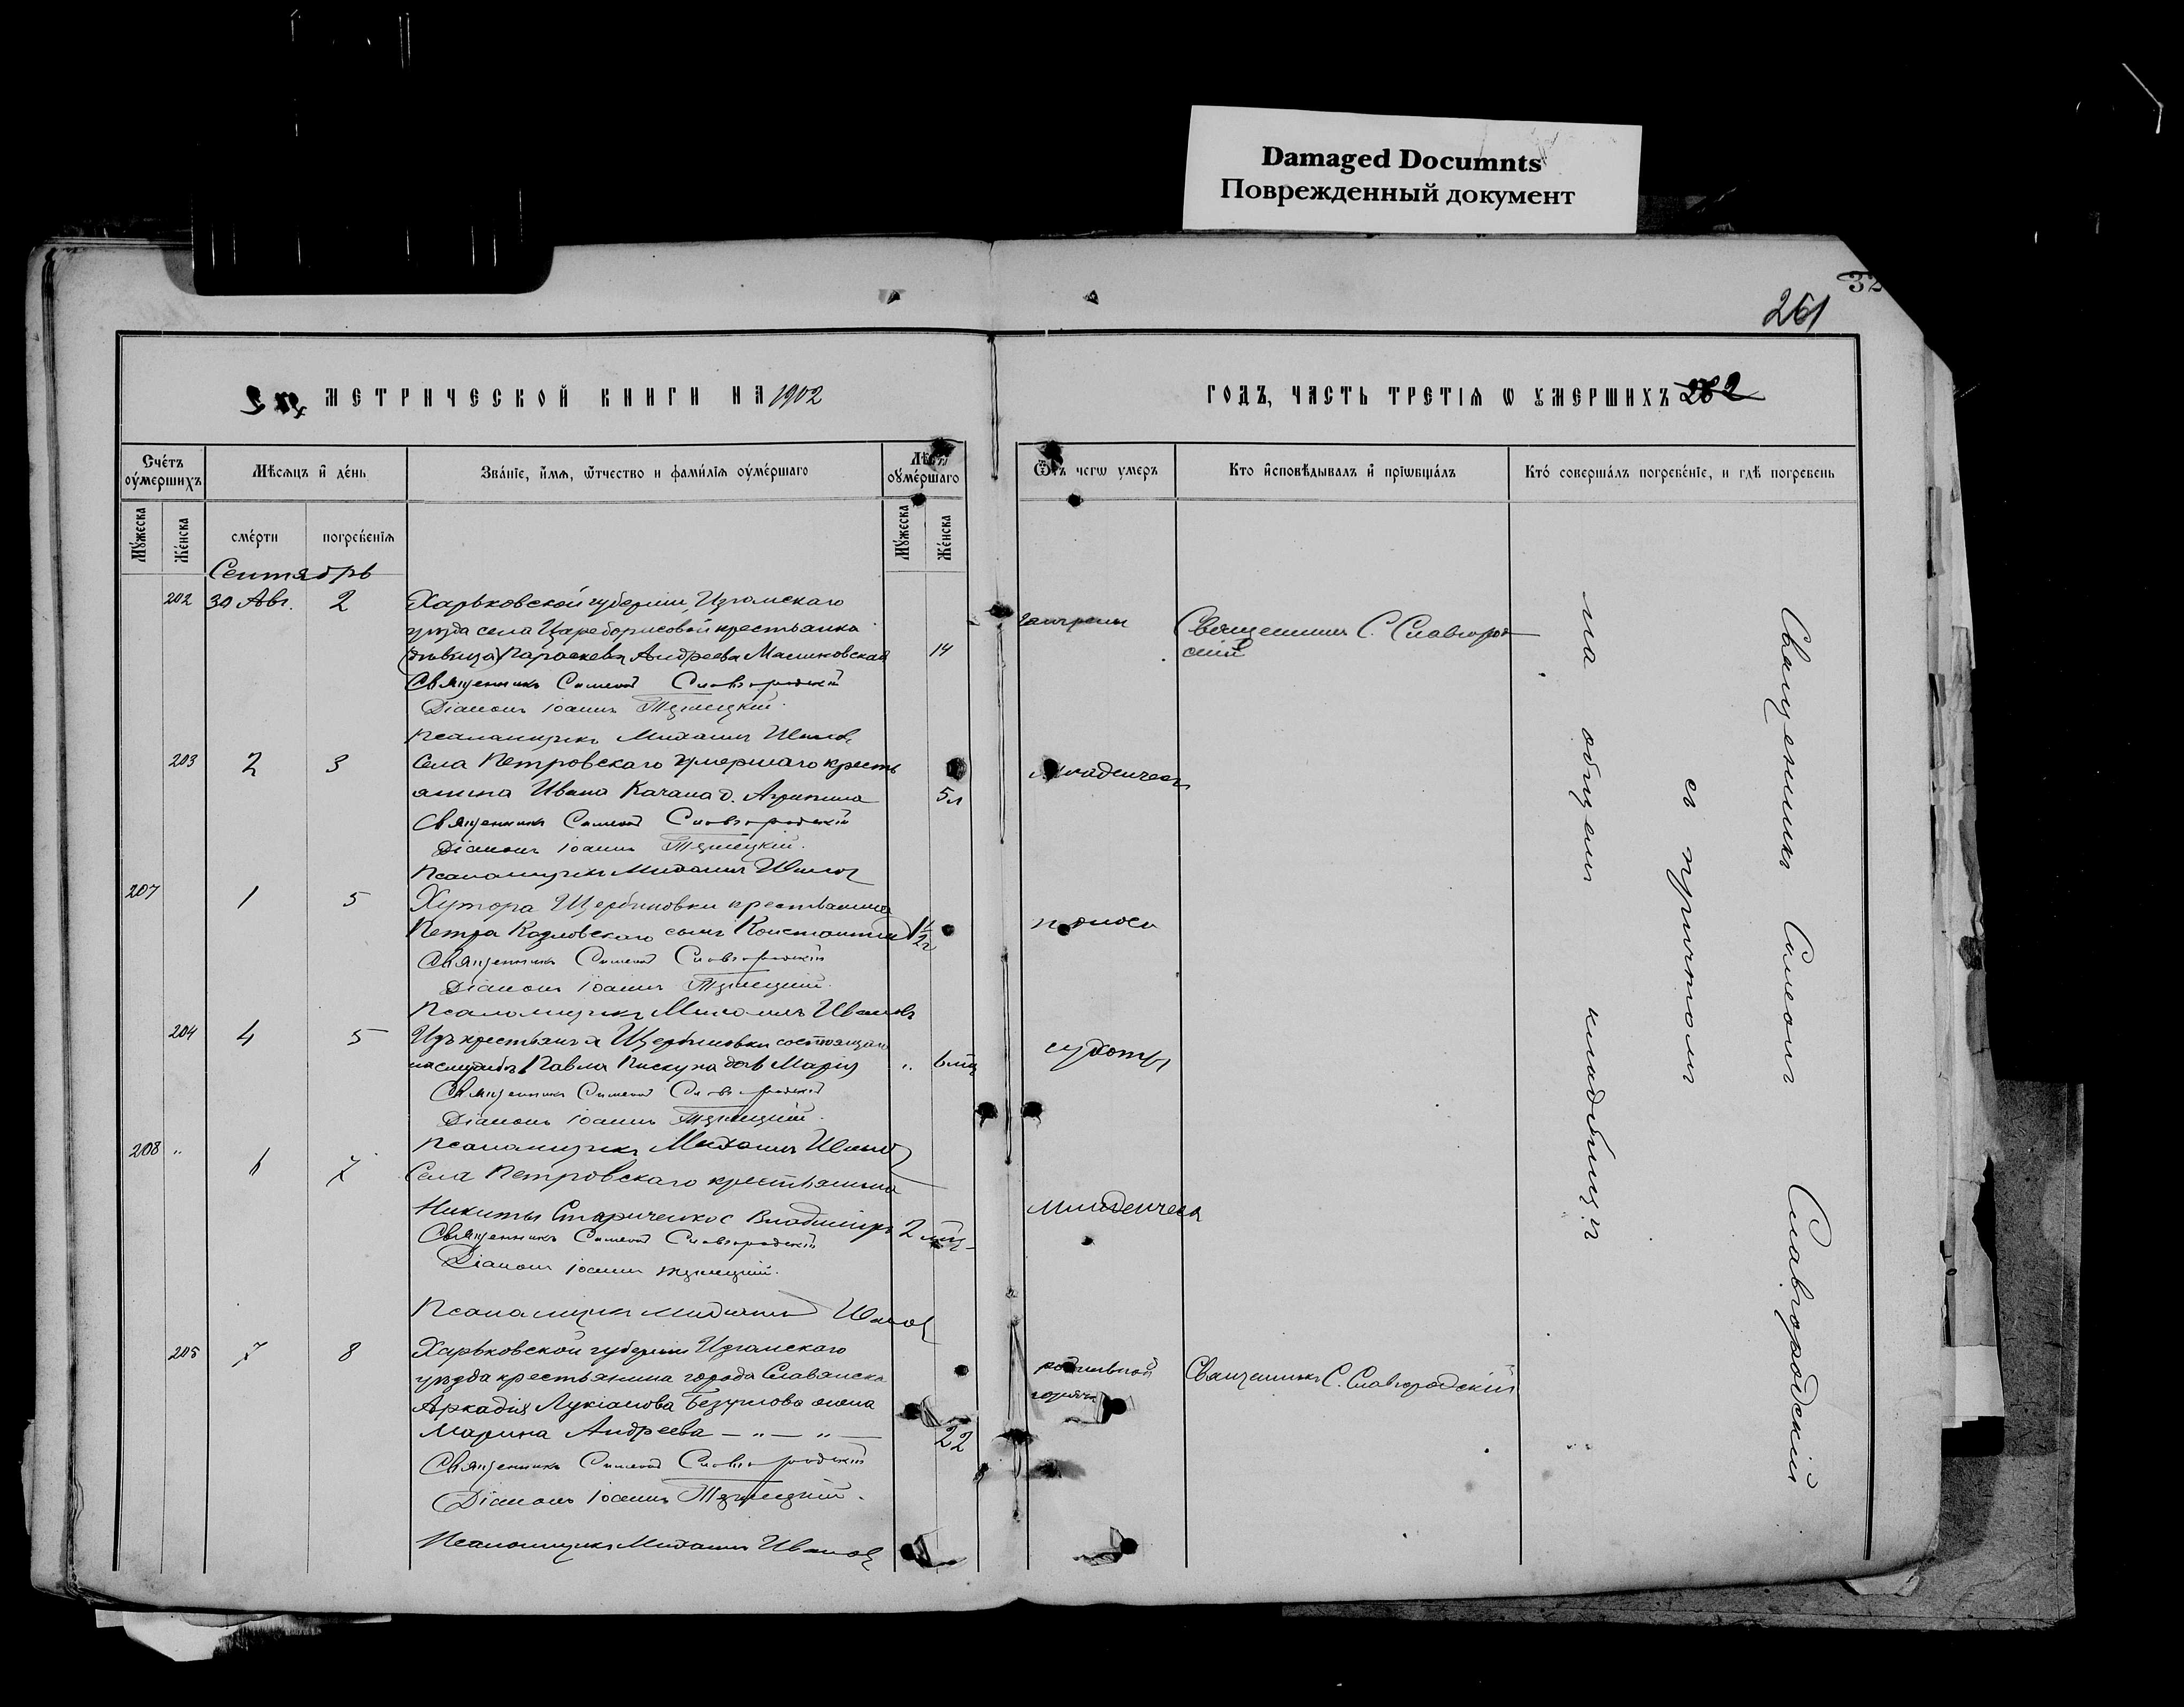 Damaged Documnts
Поврежденный документ
261
МЕТРИЧЕСКОЙ КНИГИ НА 1902
ГОДЪ, ЧАСТЬ ТРЕТІѦ Ѡ УМЕРШИХЪ 262
Счетъ оумершихъ
Мѣсѧцъ и день
Званіе, имѧ, ѿчество и фамиліѧ оумершаго
Лѣта оумершаго
Ѿъ чегѡ умеръ
Кто исповѣдывалъ и пріѡбщалъ
Кто совершалъ погребеніе, и гдѣ погребенъ
Мужеска
Женска
смерти
погребеніѧ
Мужеска
Женска
Сентябрь
202 30 Авг. 2 Харьковской губерніи, Изюмскаго
уѣзда села Цареборисовой крестьянка
(дѣвица) Параскева Андреева Малиновская 14
Священникъ С. Славгород
скій
Священникъ Симеонъ Славгородскій
Діаконъ Іоаннъ
Псаломщикъ Михаилъ Ивановъ
203 2 3 Села Петровскаго умершаго кресть
янина Ивана Качана д. Агрипина 5 л
младенческ
Священникъ Симеонъ Славгородскій
Діаконъ Іоаннъ
Псаломщикъ Михаилъ Ивановъ
207 1 5 Хутора Щербиновки крестьянина
Петра Козловскаго сынъ Константинъ 1½ г
поноса
Священникъ Симеонъ Славгородскій
Діаконъ Іоаннъ
Псаломщикъ Михаилъ Ивановъ
204 4 5 Изъ крестьянъ х Щербиновки состоящаго
Павла Пискуна дочь Марія " 6 мц
сухоты
Священникъ Симеонъ Славгородскій
Діаконъ Іоаннъ
Псаломщикъ Михаилъ Ивановъ
208 " 6 7 Села Петровскаго крестьянина
Никиты Стариченко с Владиміръ 2 мц
младенческ
Священникъ Симеонъ Славгородскій
Діаконъ Іоаннъ
Псаломщикъ Михаилъ Ивановъ
205 7 8 Харьковской губерніи Изюмскаго
уѣзда крестьянина города Славянска
Аркадія Лукіанова Безуглова жена
Марина Андреева — " — " — 22
родильной
горячк
Священникъ С. Славгородскій
Священникъ Симеонъ Славгородскій
Діаконъ Іоаннъ
Псаломщикъ Михаилъ Ивановъ
Священникъ Симеонъ Славгородскій
съ причтомъ
на общемъ кладбищѣ